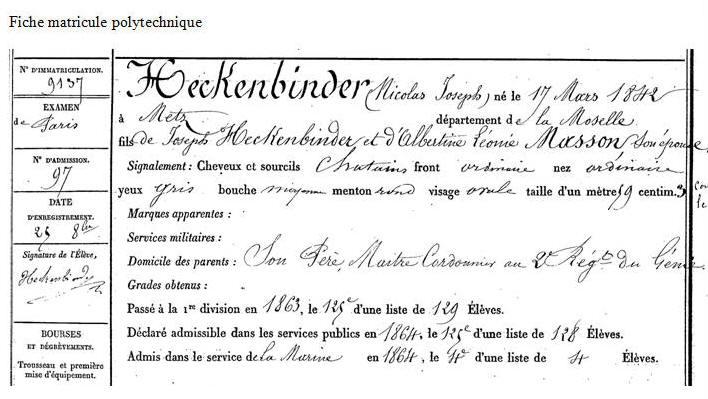 Fiche matricule polytechnique
N° D'IMMATRICULATION.
9137
EXAMEN
de Paris
N° D'ADMISSION.
97
DATE
D'ENREGISTREMENT.
25 8bre
Signature de l'Élève,
Heckenbinder
BOURSES
ET DÉGRÈVEMENTS.
Trousseau et première
mise d'équipement.
Heckenbinder (Nicolas Joseph) né le 17 Mars 1842
à Metz département de la Moselle
fils de Joseph Heckenbinder et d'Albertine Léonie Masson Son épouse
Signalement : Cheveux et sourcils Chatains front ordinaire nez ordinaire
yeux gris bouche moyenne menton rond visage ovale taille d'un mètre 59 centim.
Marques apparentes :
Services militaires :
Domicile des parents : Son Père, Maitre Cordonnier au 2e Régt du Génie
Grades obtenus :
Passé à la 1re division en 1863, le 125e d'une liste de 129 Élèves.
Déclaré admissible dans les services publics en 1864, le 125e d'une liste de 128 Élèves.
Admis dans le service de la Marine en 1864, le 4e d'une liste de 4 Élèves.